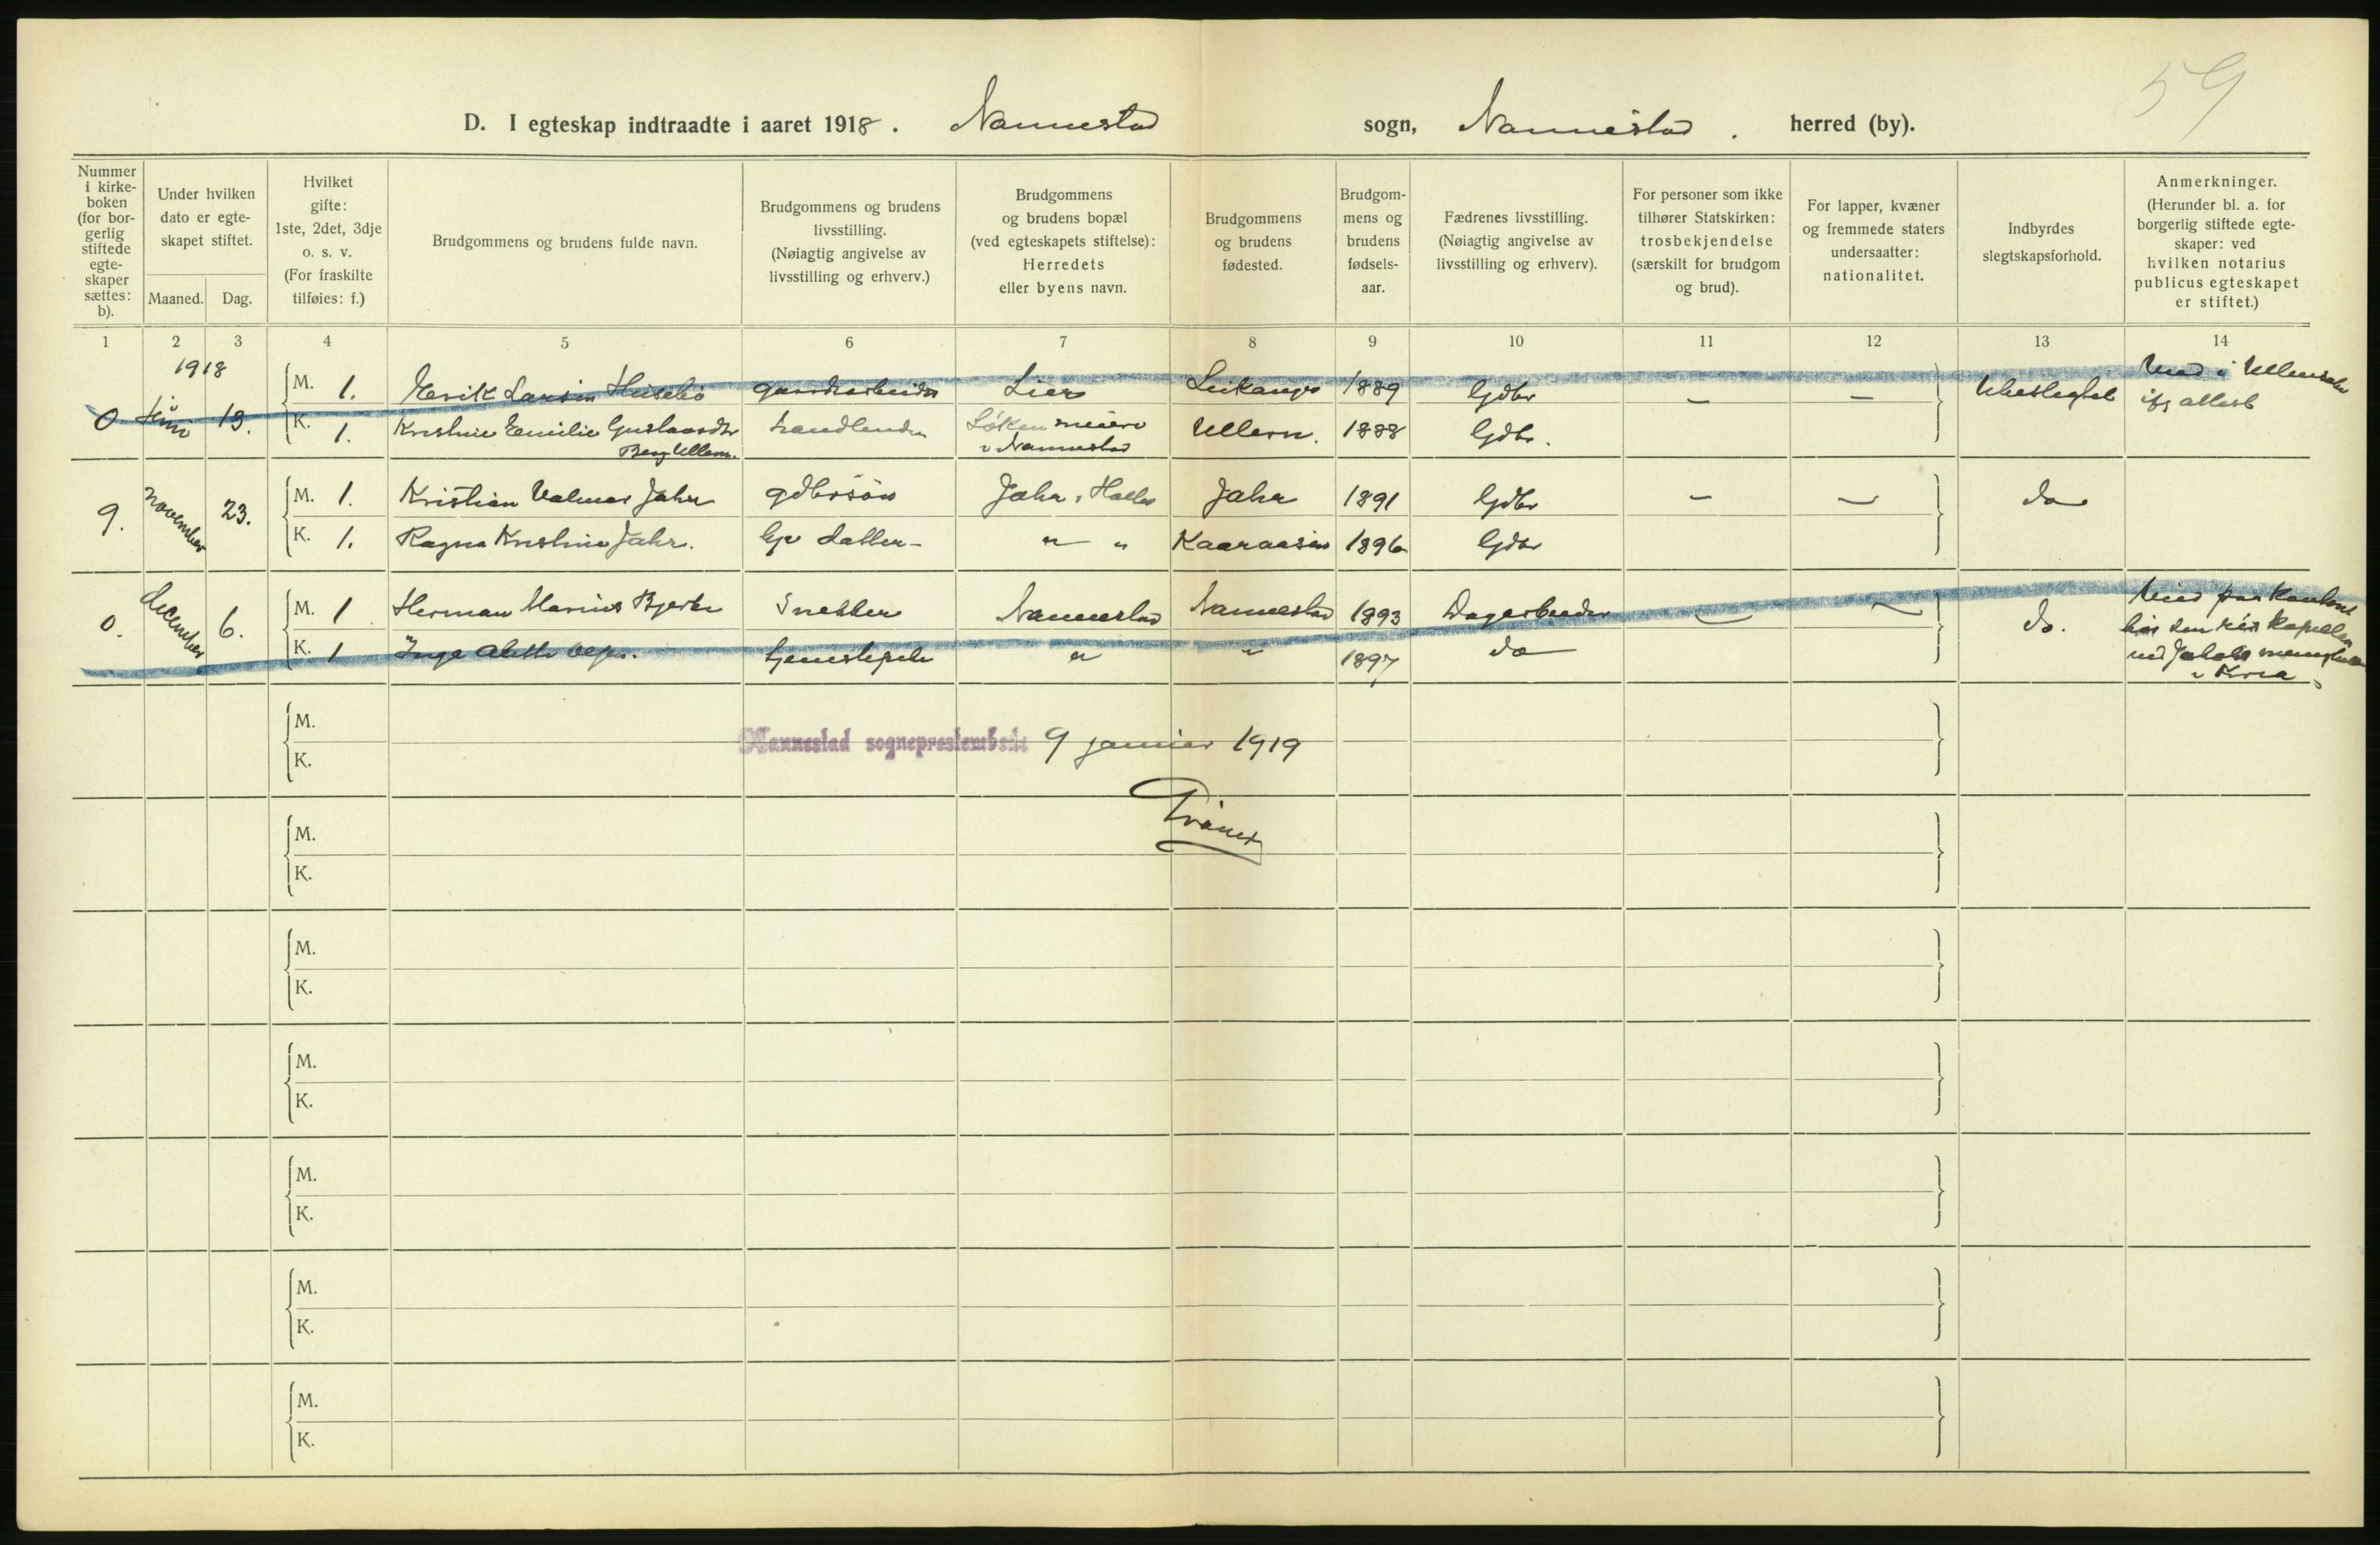 59
D. I egteskap indtraadte i aaret 1918. Nannestad sogn, Nannestad. herred (by).
Nummer i kirke- boken (for bor- gerlig stiftede egte- skaper sættes: b).
Under hvilken dato er egte- skapet stiftet.
Maaned. Dag.
Hvilket gifte: 1ste, 2det, 3dje o. s. v. (For fraskilte tilføies: f.)
Brudgommens og brudens fulde navn.
Brudgommens og brudens livsstilling. (Nøiagtig angivelse av livsstilling og erhverv.)
Brudgommens og brudens bopæl (ved egteskapets stiftelse): Herredets eller byens navn.
Brudgommens og brudens fødested.
Brudgom- mens og brudens fødsels- aar.
Fædrenes livsstilling. (Nøiagtig angivelse av livsstilling og erhverv).
For personer som ikke tilhører Statskirken: trosbekjendelse (særskilt for brudgom og brud).
For lapper, kvæner og fremmede staters undersaatter: nationalitet.
Indbyrdes slegtskapsforhold.
Anmerkninger. (Herunder bl. a. for borgerlig stiftede egte- skaper: ved hvilken notarius publicus egteskapet er stiftet.)
1 2 3 4 5 6 7 8 9 10 11 12 13 14
1918
0 juni 19. M. 1. Larsen Husebö gaardsarbeider Lier Leikanger 1889 Gdbr — — Ubeslegtet Viet i Ullensaker
K. 1. Kristine Emilie Gustavsdtr Løken meieri Ullern. 1888 Gdbr. attest
Berg Ullern. i Nannestad
9. november 23. M. 1. Kristian Valmar Jahr gdbrsön Jahr, Holter Jahr 1891 Gdbr — — do
K. 1. Ragna Kristine Jahr. datter " " Kaaraasen 1896 Gdbr
0. december 6. M. 1 Herman Marius Bjerke Snekker Nannestad Nannestad 1893 Dagarbeider — — do.
K. 1 Inga tjenestepike " " 1897 do
i Kria
Nannestad sogneprestembede 9 januar 1919
M.
K.
M.
K.
M.
K.
M.
K.
M.
K.
M.
K.
M.
K.